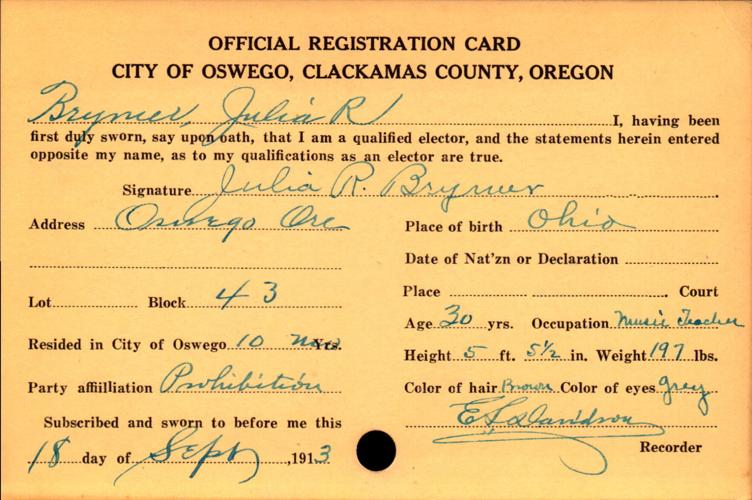 OFFICIAL REGISTRATION CARD
CITY OF OSWEGO, CLACKAMAS COUNTY, OREGON
Brymer, Julia R I, having been
first duly sworn, say upon oath, that I am a qualified elector, and the statements herein entered
opposite my name, as to my qualifications as an elector are true.
Signature Julia R. Brymer
Address Oswego Ore
Place of birth Ohio
Date of Nat'zn or Declaration
Lot Block 43
Place Court
Age 30 yrs. Occupation Music Teacher
Resided in City of Oswego 10 mos Yrs.
Height 5 ft. 5½ in. Weight 197 lbs.
Party affiilliation Prohibition
Color of hair Brown Color of eyes grey
Subscribed and sworn to before me this
E L Davidson
18 day of Sept, 1913
Recorder